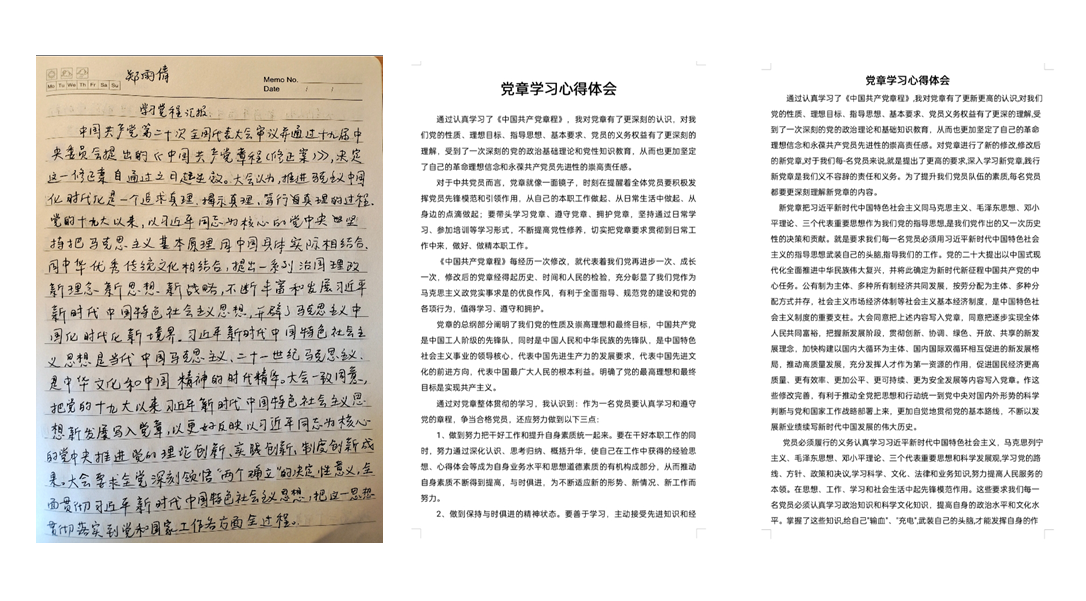 郑雨倩
Memo No.
Mo Tu We Th Fr Sa Su
Date / /
学习党程汇报.
中国共产党第二十次全国代表大会审议并通过十九届中
央委员会提出的《中国共产党章程(修正案)》,决定
这一修正案自通过之日起生效。大会认为,推进马克思主义中国
化时代化是一个追求真理、揭示真理、笃行真理的过程.
党的十九大以来,以习近平同志为核心的党中央坚
持把马克思主义基本原理同中国具体实际相结合,
同中华优秀传统文化相结合,提出一系列治国理政
新理念新思想新战略,不断丰富和发展习近平
新时代中国特色社会主义思想,开辟了马克思主义中
国化时代化新境界。习近平新时代中国特色社会主
义思想是当代中国马克思主义、二十一世纪马克思主义,
是中华文化和中国精神的时代精华。大会一致同意,
把党的十九大以来习近平新时代中国特色社会主义思
想新发展写入党章,以更好反映以习近平同志为核心
的党中央推进党的理论创新、实践创新、制度创新成
果。大会要求全党深刻领悟“两个确立”的决定性意义,全
面贯彻习近平新时代中国特色社会主义思想,把这一思想
贯彻落实到党和国家工作各方面全过程。
党章学习心得体会
通过认真学习了《中国共产党章程》,我对党章有了更深刻的认识,对我
们党的性质、理想目标、指导思想、基本要求、党员的义务权益有了更深刻的
理解,受到了一次深刻的党的政治基础理论和党性知识教育,从而也更加坚定
了自己的革命理想信念和永葆共产党员先进性的崇高责任感。
对于中共党员而言,党章就像一面镜子,时刻在提醒着全体党员要积极
发挥党员先锋模范和引领作用,从自己的本职工作做起、从日常生活中做起、从
身边的点滴做起;要带头学习党章、遵守党章、拥护党章,坚持通过日常学
习、参加培训等学习形式,不断提高党性修养,切实把党章要求贯彻到日常工
作中来,做好、做精本职工作。
《中国共产党章程》每经历一次修改,就代表着我们党再进步一次、成长
一次,修改后的党章经得起历史、时间和人民的检验,充分彰显了我们党作为
马克思主义政党实事求是的优良作风,有利于全面指导、规范党的建设和党的
各项行为,值得学习、遵守和拥护。
党章的总纲部分阐明了我们党的性质及崇高理想和最终目标,中国共产党
是中国工人阶级的先锋队,同时是中国人民和中华民族的先锋队,是中国特色
社会主义事业的领导核心,代表中国先进生产力的发展要求,代表中国先进文
化的前进方向,代表中国最广大人民的根本利益。明确了党的最高理想和最终
目标是实现共产主义。
通过对党章整体贯彻的学习,我认识到:作为一名党员要认真学习和遵守
党的章程,争当合格党员,还应努力做到以下三点:
1、做到努力把干好工作和提升自身素质统一起来。要在干好本职工作的同
时,努力通过深化认识、思考归纳、概括升华,使自己在工作中获得的经验思
想、心得体会等成为自身业务水平和思想道德素质的有机构成部分,从而推动
自身素质不断得到提高、与时俱进,为不断适应新的形势、新情况、新工作而
努力。
2、做到保持与时俱进的精神状态。要善于学习,主动接受先进知识和经
党章学习心得体会
通过认真学习了《中国共产党章程》,我对党章有了更新更高的认识,对我们
党的性质、理想目标、指导思想、基本要求、党员义务权益有了更深的理解,受
到了一次深刻的党的政治理论和基础知识教育,从而也更加坚定了自己的革命
理想信念和永葆共产党员先进性的崇高责任感。对党章进行了新的修改,修改后
的新党章,对于我们每-名党员来说,就是提出了更高的要求,深入学习新党章,践行
新党章是我们义不容辞的责任和义务。为了提升我们党员队伍的素质,每名党员
都要更深刻理解新党章的内容。
新党章把习近平新时代中国特色社会主义同马克思主义、毛泽东思想、邓小
平理论、三个代表重要思想作为我们党的指导思想,是我们党作出的又一次历史
性的决策和贡献。就是要求我们每一名党员必须用习近平新时代中国特色社会
主义的指导思想武装自己的头脑,指导我们的工作。党的二十大提出以中国式现
代化全面推进中华民族伟大复兴,并将此确定为新时代新征程中国共产党的中
心任务。公有制为主体、多种所有制经济共同发展,按劳分配为主体、多种分
配方式并存,社会主义市场经济体制等社会主义基本经济制度,是中国特色社
会主义制度的重要支柱。大会同意把上述内容写入党章,同意把逐步实现全体
人民共同富裕,把握新发展阶段,贯彻创新、协调、绿色、开放、共享的新发
展理念,加快构建以国内大循环为主体、国内国际双循环相互促进的新发展格
局,推动高质量发展,充分发挥人才作为第一资源的作用,促进国民经济更高
质量、更有效率、更加公平、更可持续、更为安全发展等内容写入党章。作这
些修改完善,有利于推动全党把思想和行动统一到党中央对国内外形势的科学
判断与党和国家工作战略部署上来,更加自觉地贯彻党的基本路线,不断以发
展新业绩续写新时代中国发展的伟大历史。
党员必须履行的义务认真学习习近平新时代中国特色社会主义,马克思列宁
主义、毛泽东思想、邓小平理论、三个代表重要思想和科学发展观,学习党的路
线、方针、政策和决议,学习科学、文化、法律和业务知识,努力提高人民服务的
本领。在思想、工作、学习和社会生活中起先锋模范作用。这些要求我们每一
名党员必须认真学习政治知识和科学文化知识,提高自身的政治水平和文化水
平。掌握了这些知识,给自己“输血”、“充电”,武装自己的头脑,才能发挥自身的作